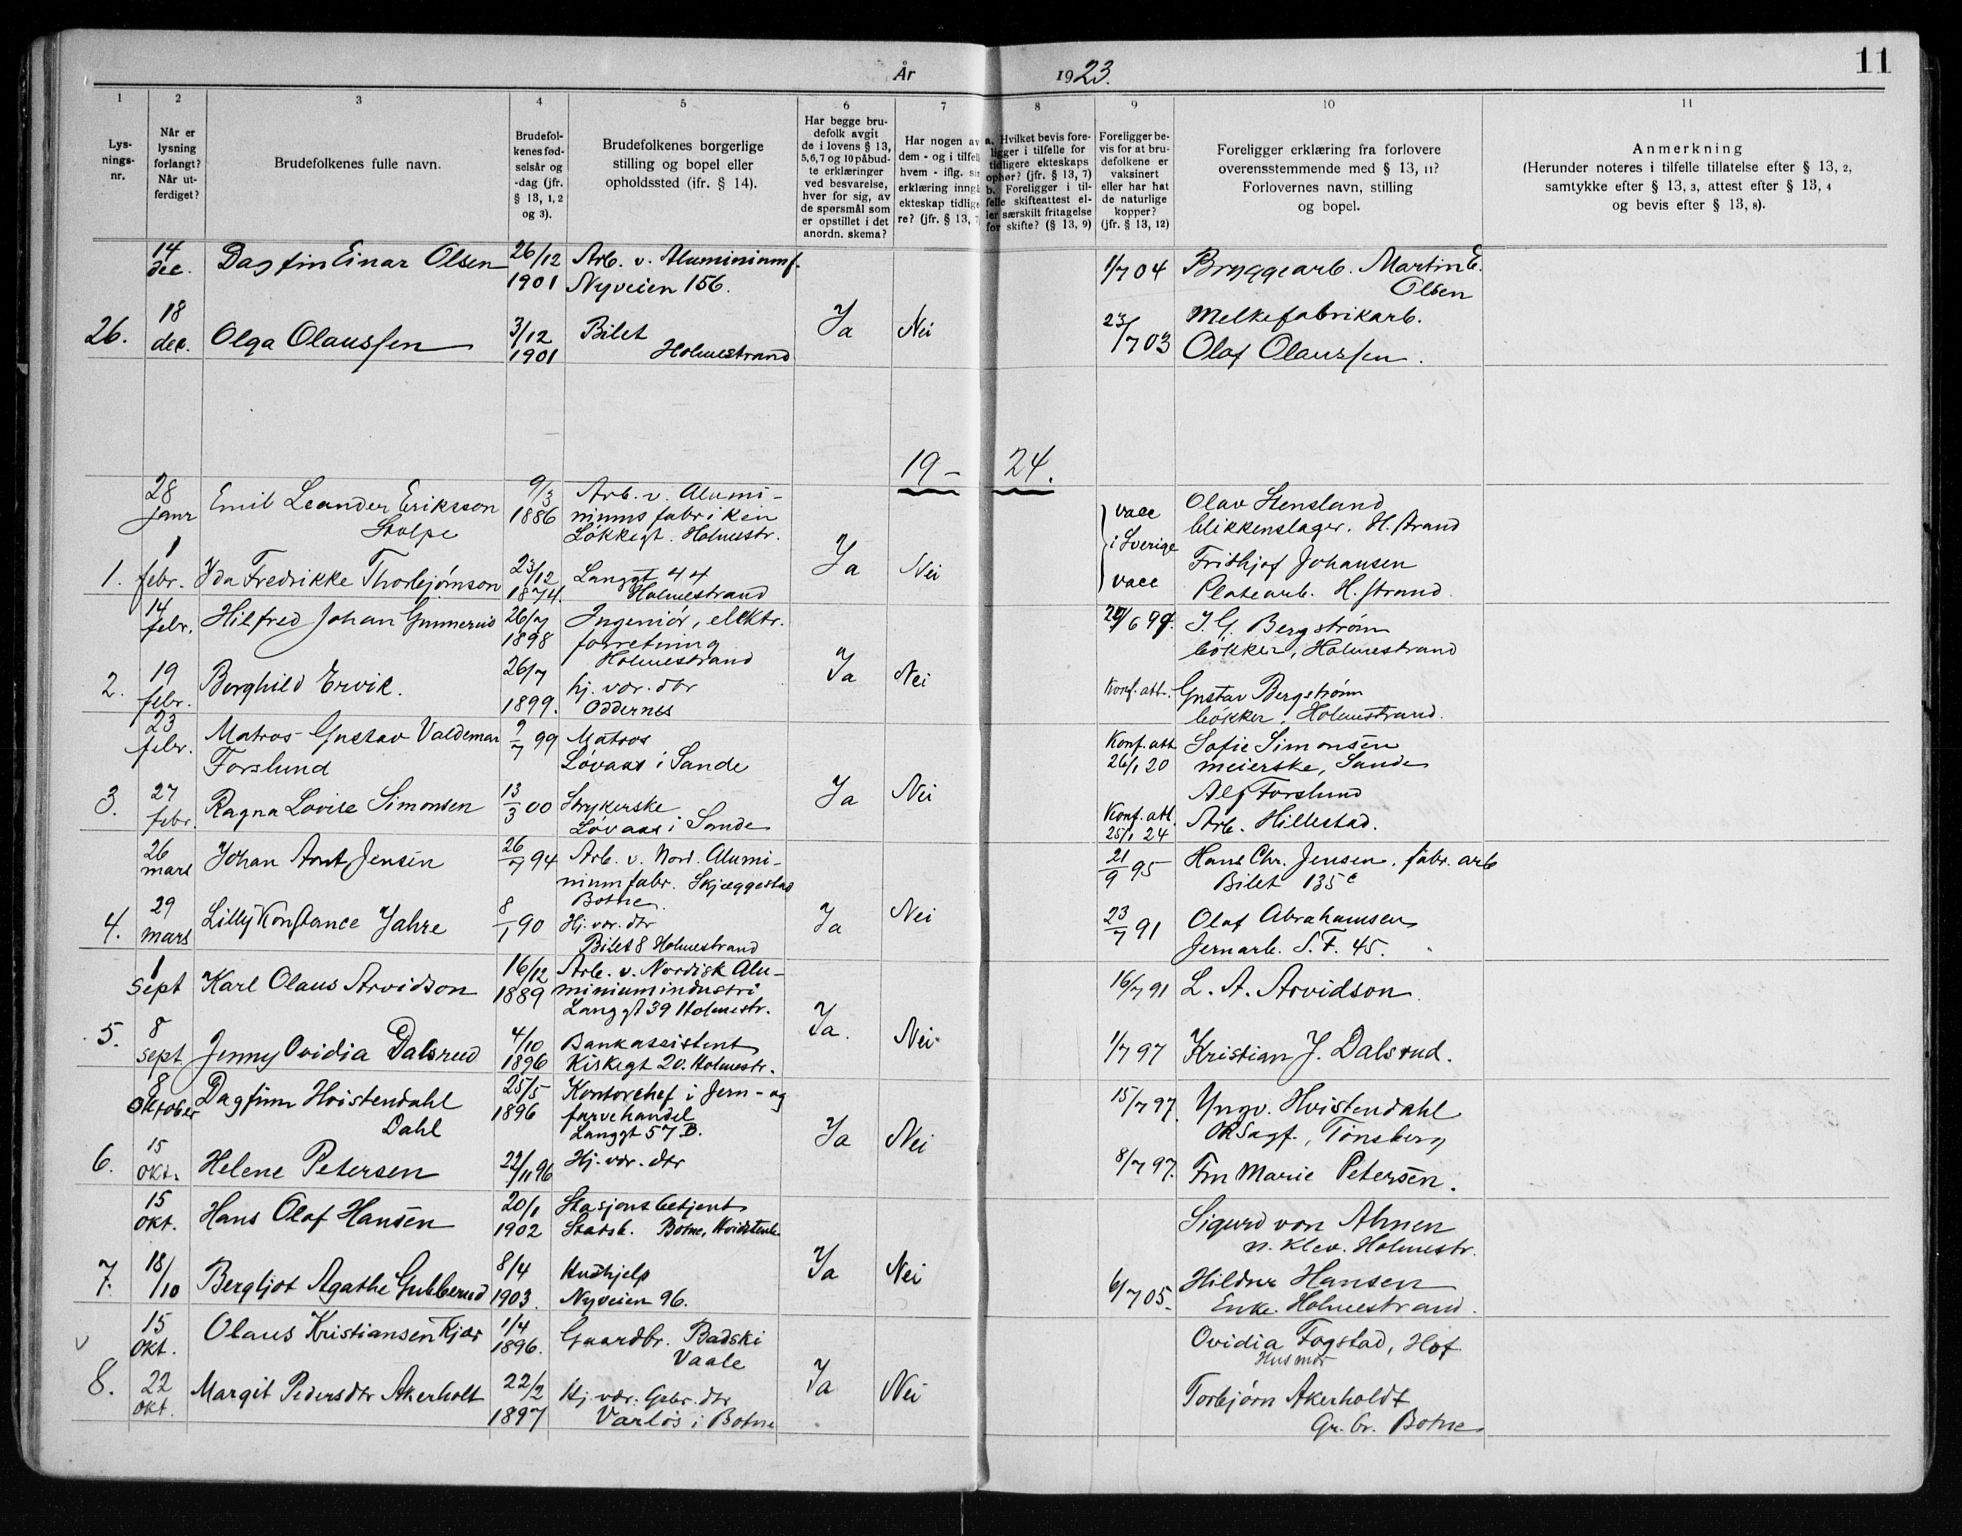 År 1923. 11
1 2 3 4 5 6 7 8 9 10 11
Lys-
nings-
nr.
Når er
lysning
forlangt?
Når ut-
ferdiget?
Brudefolkenes fulle navn.
Brudefol-
kenes fød-
selsår og
-dag (jfr.
§ 13, 1, 2
og 3).
Brudefolkenes borgerlige
stilling og bopel eller
opholdssted (ifr. § 14).
Har begge bru-
defolk avgit
de i lovens § 13,
5, 6, 7 og 10 påbud-
te erklæringer
ved besvarelse,
hver for sig, av
de spørsmål som
er opstillet i det
anordn. skema?
Har nogen av
dem - og i tilfelle
hvem - iflg. sin
erklæring inngåt
ekteskap tidlige-
re? (jfr. § 13, 7
a. Hvilket bevis fore-
ligger i tilfelle for
tidligere ekteskaps
ophør? (jfr. § 13, 7)
b. Foreligger i til-
felle skifteattest el-
ler særskilt fritagelse
for skifte? (§ 13, 9)
Foreligger be-
vis for at bru-
defolkene er
vaksinert
eller har hat
de naturlige
kopper?
(jfr. § 13, 12)
Foreligger erklæring fra forlovere
overensstemmende med § 13, 11?
Forlovernes navn, stilling
og bopel.
Anmerkning
(Herunder noteres i tilfelle tillatelse efter § 13, 2,
samtykke efter § 13, 3, attest efter § 13, 4
og bevis efter § 13, 8).
14 dec. Dagfin Einar Olsen 26/12 1901 Arb. v. Aluminiumf.
Nyveien 156. 1/7 04 Bryggearb. Martin E.
Olsen
26. 18 dec. Olga Olaussen 3/12 1901 Bilet
Holmestrand Ja Nei 23/7 03 Melkefabrikarb.
Olaf Olaussen.
19 – 24.
28 janr Emil Leander Eriksson
Stolpe 9/3 1886 Arb. v. Alumi-
niums fabriken
Løkkegt. Holmestr. vacc i Sverige Olav Stensland
blikkenslager. H.strand
1. 1 febr. Ida Fredrikke Thorbjørnson 23/12 1874. Langgt 44
Holmestrand Ja Nei vacc Frithjof Johansen
Platearb. H.strand
14 febr. Hilfred Johan Gunnerud 26/7 1898 Ingeniør, elektr.
forretning
Holmestrand /6 99. J. G. Bergstrøm
bøkker, Holmestrand
2. 19 febr. Borghild Ervik. 26/7 1899. hj. vær. dtr
Oddernes Ja Nei Konf. att. Gustav Bergstrøm
bøkker, Holmestrand.
23 febr. Matros Gustav Valdemar
Forslund 9/7 99 Matros
Løvaas i Sande Konf. att
26/1 20 Sofie Simonsen
meierske, Sande
3. 27 febr. Ragna Lovise Simonsen 13/3 00 Strykerske
Løvaas i Sande Ja Nei Konf. att.
25/1 24 Alf Forslund
Arb. Hillestad.
26 mars Johan Arnt Jensen 26/7 94 Arb. v. Nord. Alumi-
niumfabr. Skjæggestad
Botne. 21/9 95 Hans Chr. Jensen. fabr. arb
Bilet 135c
4. 29 mars Lilly Konstance Jahre 8/1 90 Hj. vær. dtr
Bilet 8 Holmestrand Ja Nei 23/7 91 Olaf Abrahamsen
Jernarb. S. F. 45.
1 sept Karl Olaus Arvidson 16/12 1889 Arb. v. Nordisk Alu-
miniumindustri
Langgt 39 Holmestr. 16/7 91 L. A. Arvidson
5. 8 sept Jenny Ovidia Dalsrud 4/10 1896 Bankassistent
Kirkegt 20. Holmestr. Ja. Nei 1/7 97 Kristian J. Dalsrud.
8 oktober Dagfinn Hvistendahl
Dahl 25/5 1896 Kontorchef i Jern- og
farvehandel
Langgt 57 B. 15/7 97. Yngv. Hvistendahl
O.R.sagf., Tønsberg
6. 15 okt. Helene Petersen 22/11 96 Hj. vær. dtr Ja Nei 8/7 97. Fru Marie Petersen.
15 okt. Hans Olaf Hansen 20/1 1902 Stasjonsbetjent
Statsb. Botne, Sigurd von Ahnen
n. Klev. Holmestr.
7. 18/10 Bergljot Agathe Gubberud 8/4 1903. Hushjelp
Nyveien 96. Ja Nei 6/7 05. Hildur Hansen
Enke. Holmestrand.
15 okt. Olaus Kristiansen Kjær 1/4 1896. Gaardbr. Badski
Vaale Ovidia Fogstad, Hof
Husmor
8. 22 okt. Margit Pedersdtr Akerholt 22/2 1897 Hj. vær. Gbr. dtr
Varløs i Botne Ja Nei Torbjørn Akerholdt
Gr. br. Botne